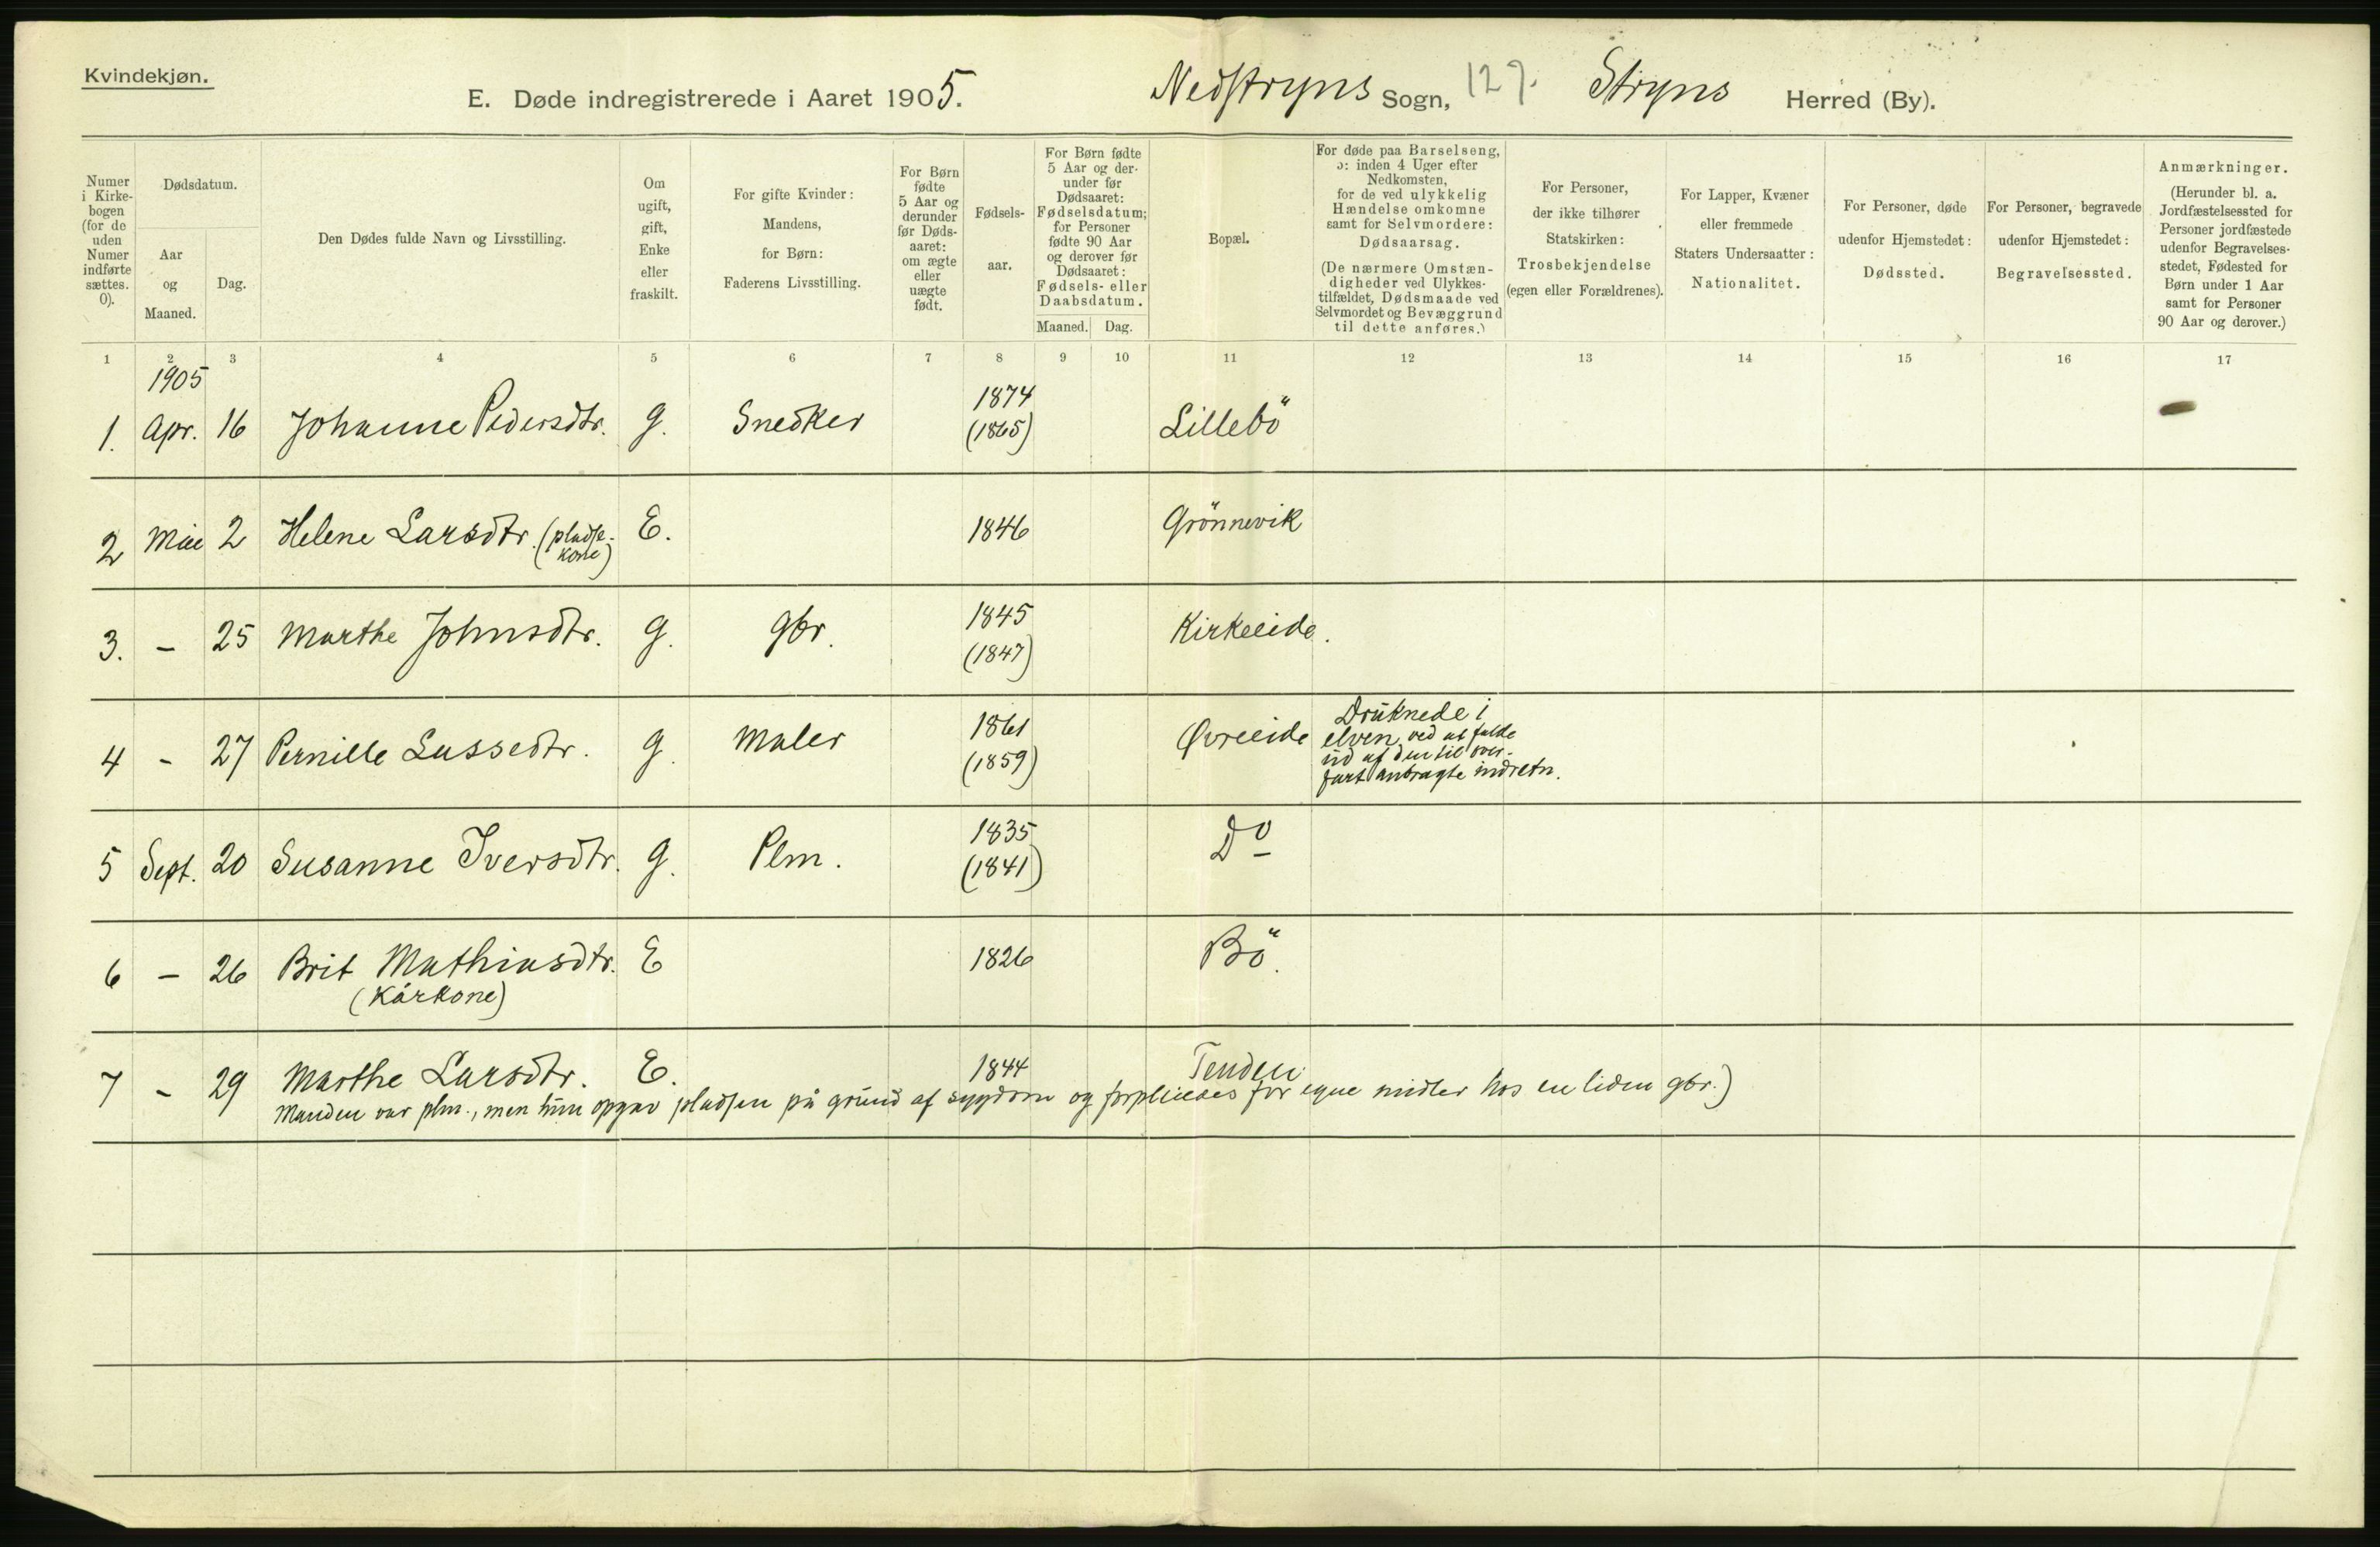 Kvindekjøn.
E. Døde indregistrerede i Aaret 1905. Nedstryns Sogn, 127. Stryns Herred (By).
Numer
i Kirke-
bogen
(for de
uden
Numer
indførte
sættes.
0).
Dødsdatum.
Aar
og
Maaned.
Dag.
Den Dødes fulde Navn og Livsstilling.
Om
ugift,
gift,
Enke
eller
fraskilt.
For gifte Kvinder:
Mandens,
for Børn:
Faderens Livsstilling.
For Børn
fødte
5 Aar og
derunder
før Døds-
aaret:
om ægte
eller
uægte
født.
Fødsels-
aar.
For Børn fødte
5 Aar og der-
under før
Dødsaaret:
Fødselsdatum;
for Personer
fødte 90 Aar
og derover før
Dødsaaret:
Fødsels- eller
Daabsdatum.
Maaned. Dag.
Bopæl.
For døde paa Barselseng,
ɔ: inden 4 Uger efter
Nedkomsten,
for de ved ulykkelig
Hændelse omkomne
samt for Selvmordere:
Dødsaarsag.
(De nærmere Omstæn-
digheder ved Ulykkes-
tilfældet, Dødsmaade ved
Selvmordet og Bevæggrund
til dette anføres.)
For Personer,
der ikke tilhører
Statskirken:
Trosbekjendelse
(egen eller Forældrenes).
For Lapper, Kvæner
eller fremmede
Staters Undersaatter:
Nationalitet.
For Personer, døde
udenfor Hjemstedet:
Dødssted.
For Personer, begravede
udenfor Hjemstedet:
Begravelsessted.
Anmærkninger.
(Herunder bl. a.
Jordfæstelsessted for
Personer jordfæstede
udenfor Begravelses-
stedet, Fødested for
Børn under 1 Aar
samt for Personer
90 Aar og derover.)
1 2 3 4 5 6 7 8 9 10 11 12 13 14 15 16 17
1905
1. Apr. 16 Johanne Pedersdtr. g. Snedker 1874 Lillebö
(1865)
2 Mai 2 Helene Larsdtr. (pladse- E. 1846 Grönnevik
kone)
3. – 25 Marthe Johnsdtr. g. gbr. 1845 Kirkeeide.
(1847)
4 – 27 Pernille Lassedtr. g. Maler 1861 Øvreeide Druknede i
(1859) elven, ved at falde
ud af den til over-
fart anbragte indretn.
5 Sept. 20 Susanne Iversdtr. g. Plm. 1835 Do
(1841)
6 – 26 Brit Mathiasdtr. E 1826 Bö.
(Kårkone)
7 – 29 Marthe Larsdtr. E. 1844 Tenden
Manden var plm., men hun opgav pladsen på grund af sygdom og forpleiedes for egne midler hos en liden gbr.)